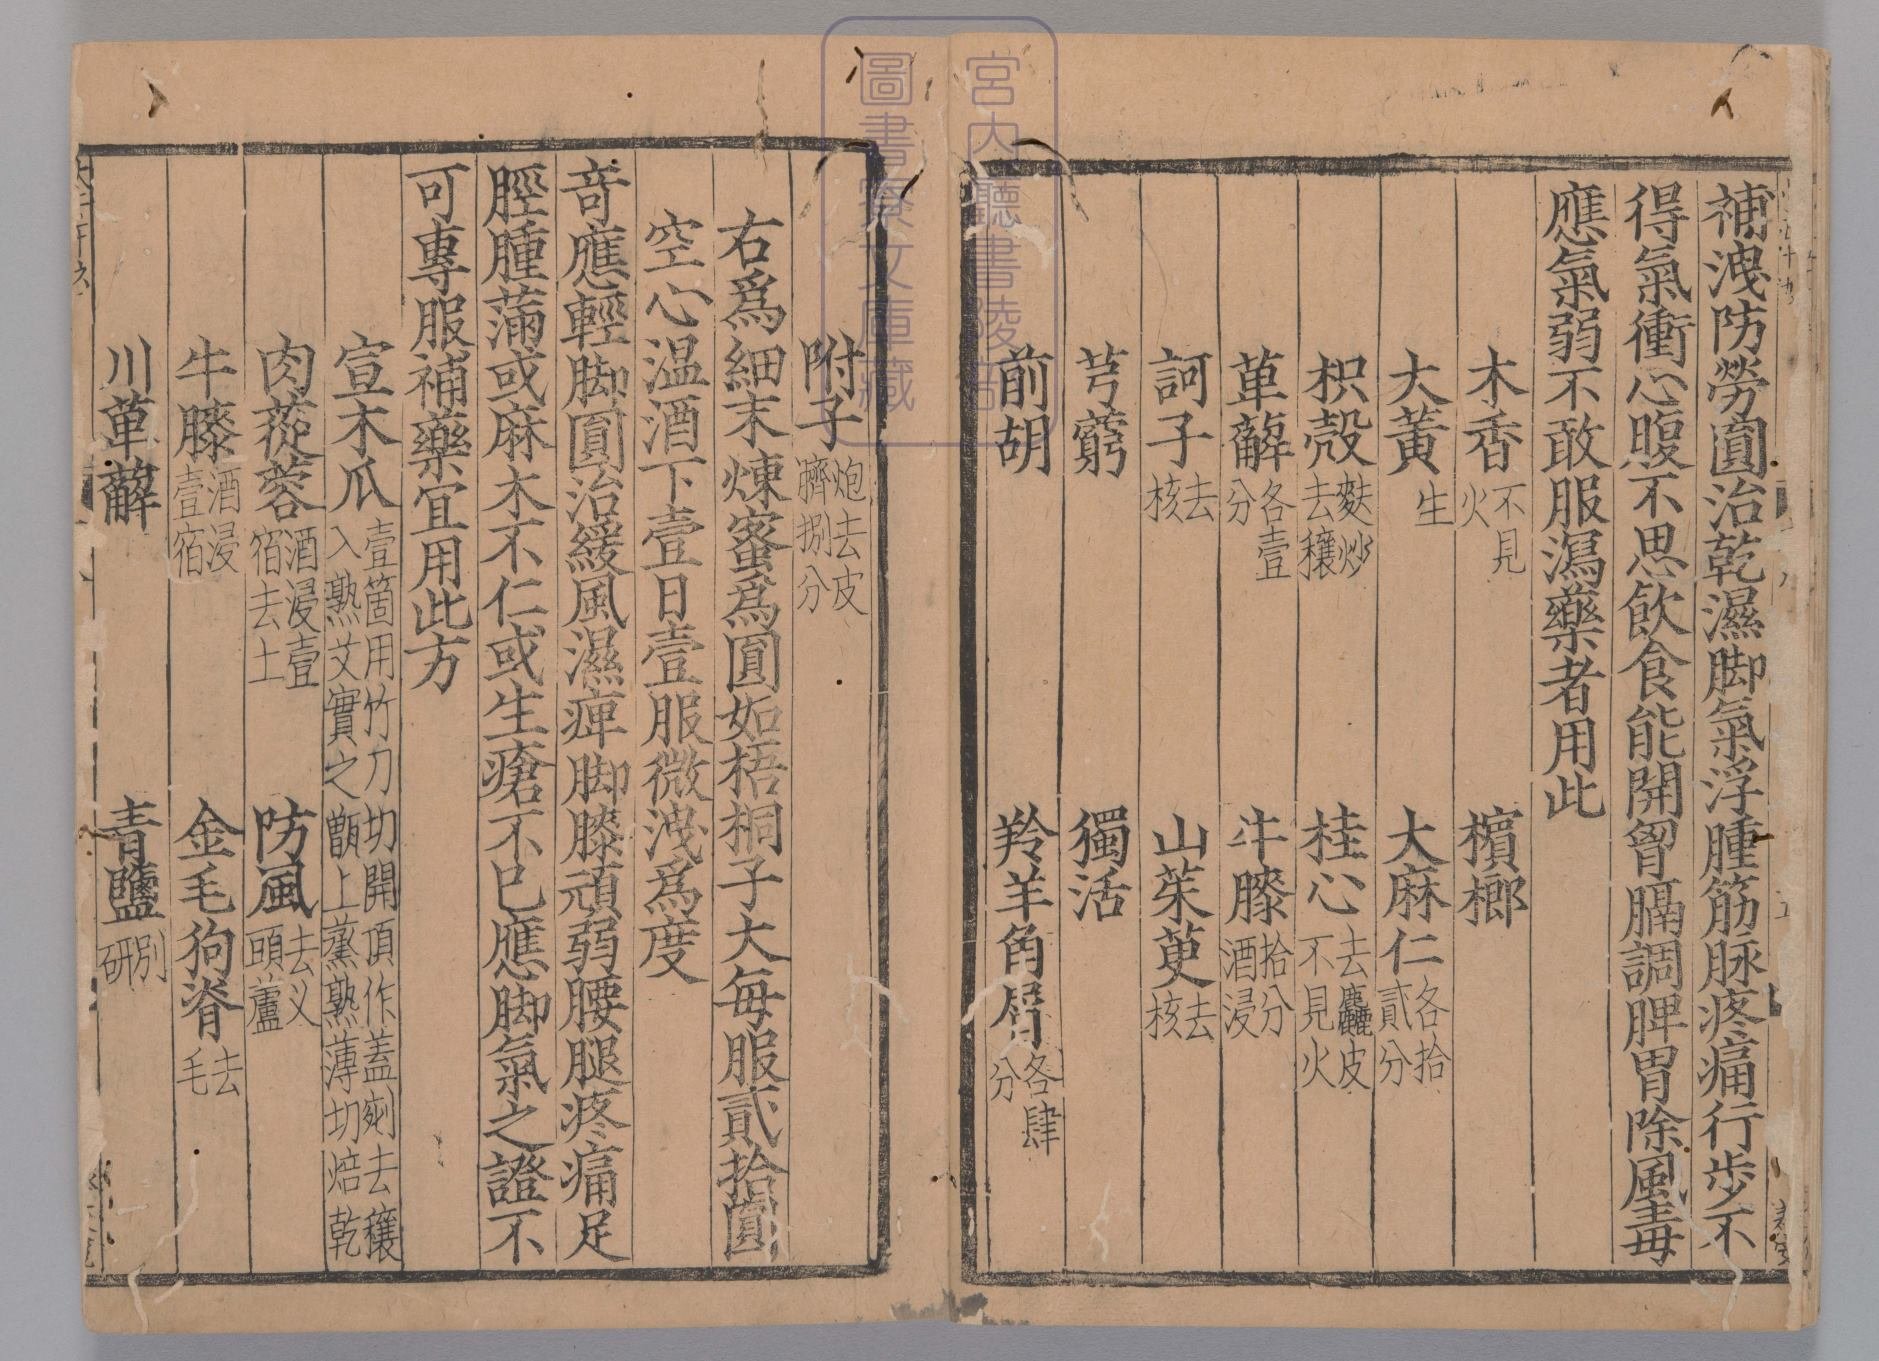 補洩防勞圓治乾濕脚氣浮腫筋脉疼痛行步不
得氣衝心腹不思飲食能開胷膈調脾胃除風毒
應氣弱不敢服瀉藥者用此
木香不見火 檳榔
大黃生 大麻仁各拾貳分
枳殼麩炒去穰 桂心去麤皮不見火
萆薢各壹分 牛膝拾分酒浸
訶子去核 山茱萸去核
芎藭 獨活
前胡 羚羊角屑各肆分
附子炮去皮臍捌分
右爲細末煉蜜爲圓如梧桐子大每服貳拾圓
空心温酒下壹日壹服微洩爲度
竒應輕脚圓治緩風濕痺脚膝頑弱腰腿疼痛足
脛腫滿或麻木不仁或生瘡不已應脚氣之證不
可專服補藥宜用此方
宣木瓜壹箇用竹刀切開頂作蓋剜去穰入熟艾實之甑上蒸熟薄切焙乾
肉蓯蓉酒浸壹宿去土 防風去义頭蘆
牛膝酒浸壹宿 金毛狗脊去毛
川萆薢 青鹽別研
宮内廳書陵部
圖書寮文庫藏